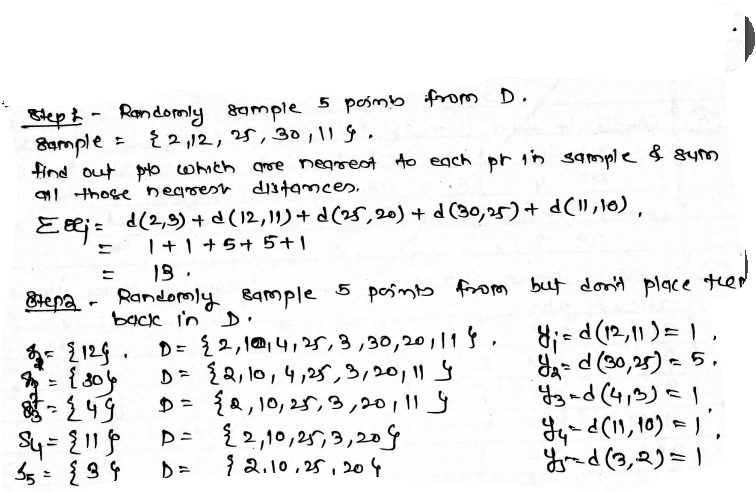 Step 1 - Randomly sample 5 points from D.
Sample = {2,12, 25, 30, 11}.
find out pts which are nearest to each pt in sample & sum
all those nearest distances.
Σ xj = d(2,3) + d(12,11) + d(25,20) + d(30,25) + d(11,10).
= 1 + 1 + 5 + 5 + 1
= 13.
Step2 - Randomly sample 5 points from but don't place them
back in D.
= {12}. D = {2,10,4,25,3,30,20,11}. y1 = d(12,11) = 1.
= {30} D = {2,10,4,25,3,20,11} y2 = d(30,25) = 5.
S3 = {4} D = {2,10,25,3,20,11} y3 = d(4,3) = 1.
S4 = {11} D = {2,10,25,3,20} y4 = d(11,10) = 1.
S5 = {3} D = {2,10,25,20} y5 = d(3,2) = 1